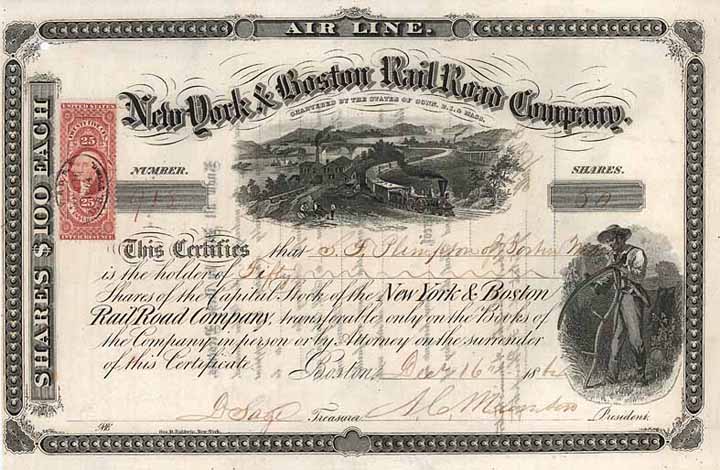 AIR LINE.
New York & Boston Rail Road Company.
CHARTERED BY THE STATES OF CONN. R.I. & MASS.
SHARES $100 EACH
UNITED STATES
25
25
INTER. REVENUE
NUMBER.
SHARES.
50
This Certifies that S. F. Plimpton of Boston
is the holder of Fifty
Shares of the Capital Stock of the New York & Boston
Rail Road Company, transferable only on the Books of
the Company in person or by Attorney on the surrender
of this Certificate.
Boston, Dec 16 186
D Sage Treasurer President.
Geo. D. Baldwin, New-York.